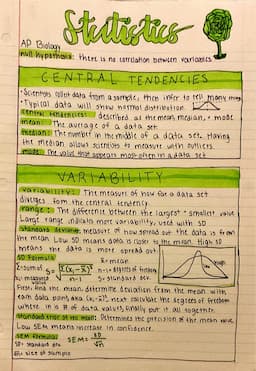 Statistics
AP Biology
null hypothesis: there is no correlation between variables
CENTRAL TENDENCIES
• Scientists collect data from a sample, then infer to tell many things
• Typical data will show normal distribution
central tendencies: described as the mean, median, + mode
mean: The average of a data set
median: The number in the middle of a data set. Having
the median allows scientists to measure with outliers.
mode: The value that appears most often in a data set
VARIABILITY
variability: The measure of how far a data set
diverges from the central tendency.
range: The difference between the largest + smallest value
Large range indicate more variability, used with SD
standard deviation: measure of how spread out the data is from
the mean. Low SD means data is closer to the mean. High SD
means the data is more spread out.
SD formula
Σ=sum of
S = √Σ(xᵢ-x̄)²/n-1
x̄=mean
n-1=degrees of freedom
S= standard dev.
First, find the mean, determine deviation from the mean with
each data point aka (xᵢ-x̄)², next calculate the degrees of freedom
where in is # of data values, finally put it all together.
standard error of the mean: Determines the precision of the mean value
Low SEM means increase in confidence.
SEM formula:
SEM= SD/√n
SD= standard dev.
n= size of sample